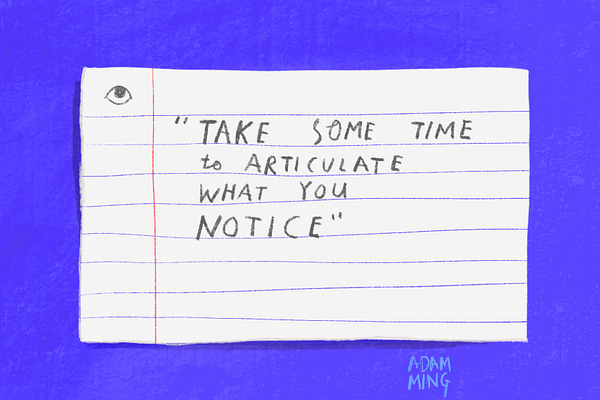 "TAKE SOME TIME
to ARTICULATE
WHAT YOU
NOTICE"
ADAM
MING